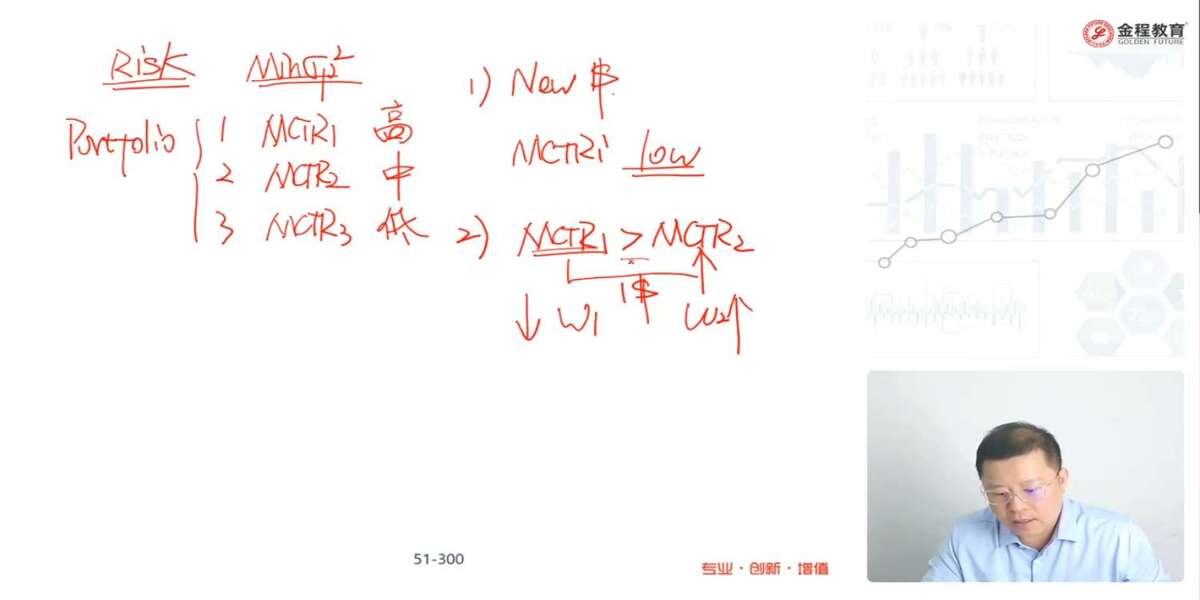 金程教育
GOLDEN FUTURE
Risk Min σp²
Portfolio
1 MCTR1 高
2 MCTR2 中
3 MCTR3 低
1) New $
MCTRi low
2) MCTR1 > MCTR2
1$
↓ W1 W2↑
51-300
专业·创新·增值